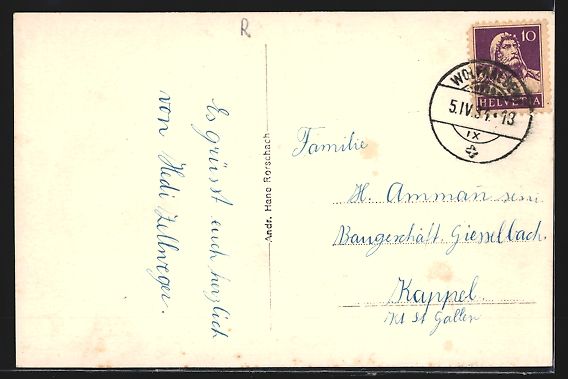 R
Es grüsst euch herzlich
von Hedi Zellweger.
Andr. Hane Rorschach
10
HELVETIA
5.IV.34.-13
IX
Familie
H. Ammann sen.
Baugeschäft. Giesselbach.
Kappel
Kt St Gallen